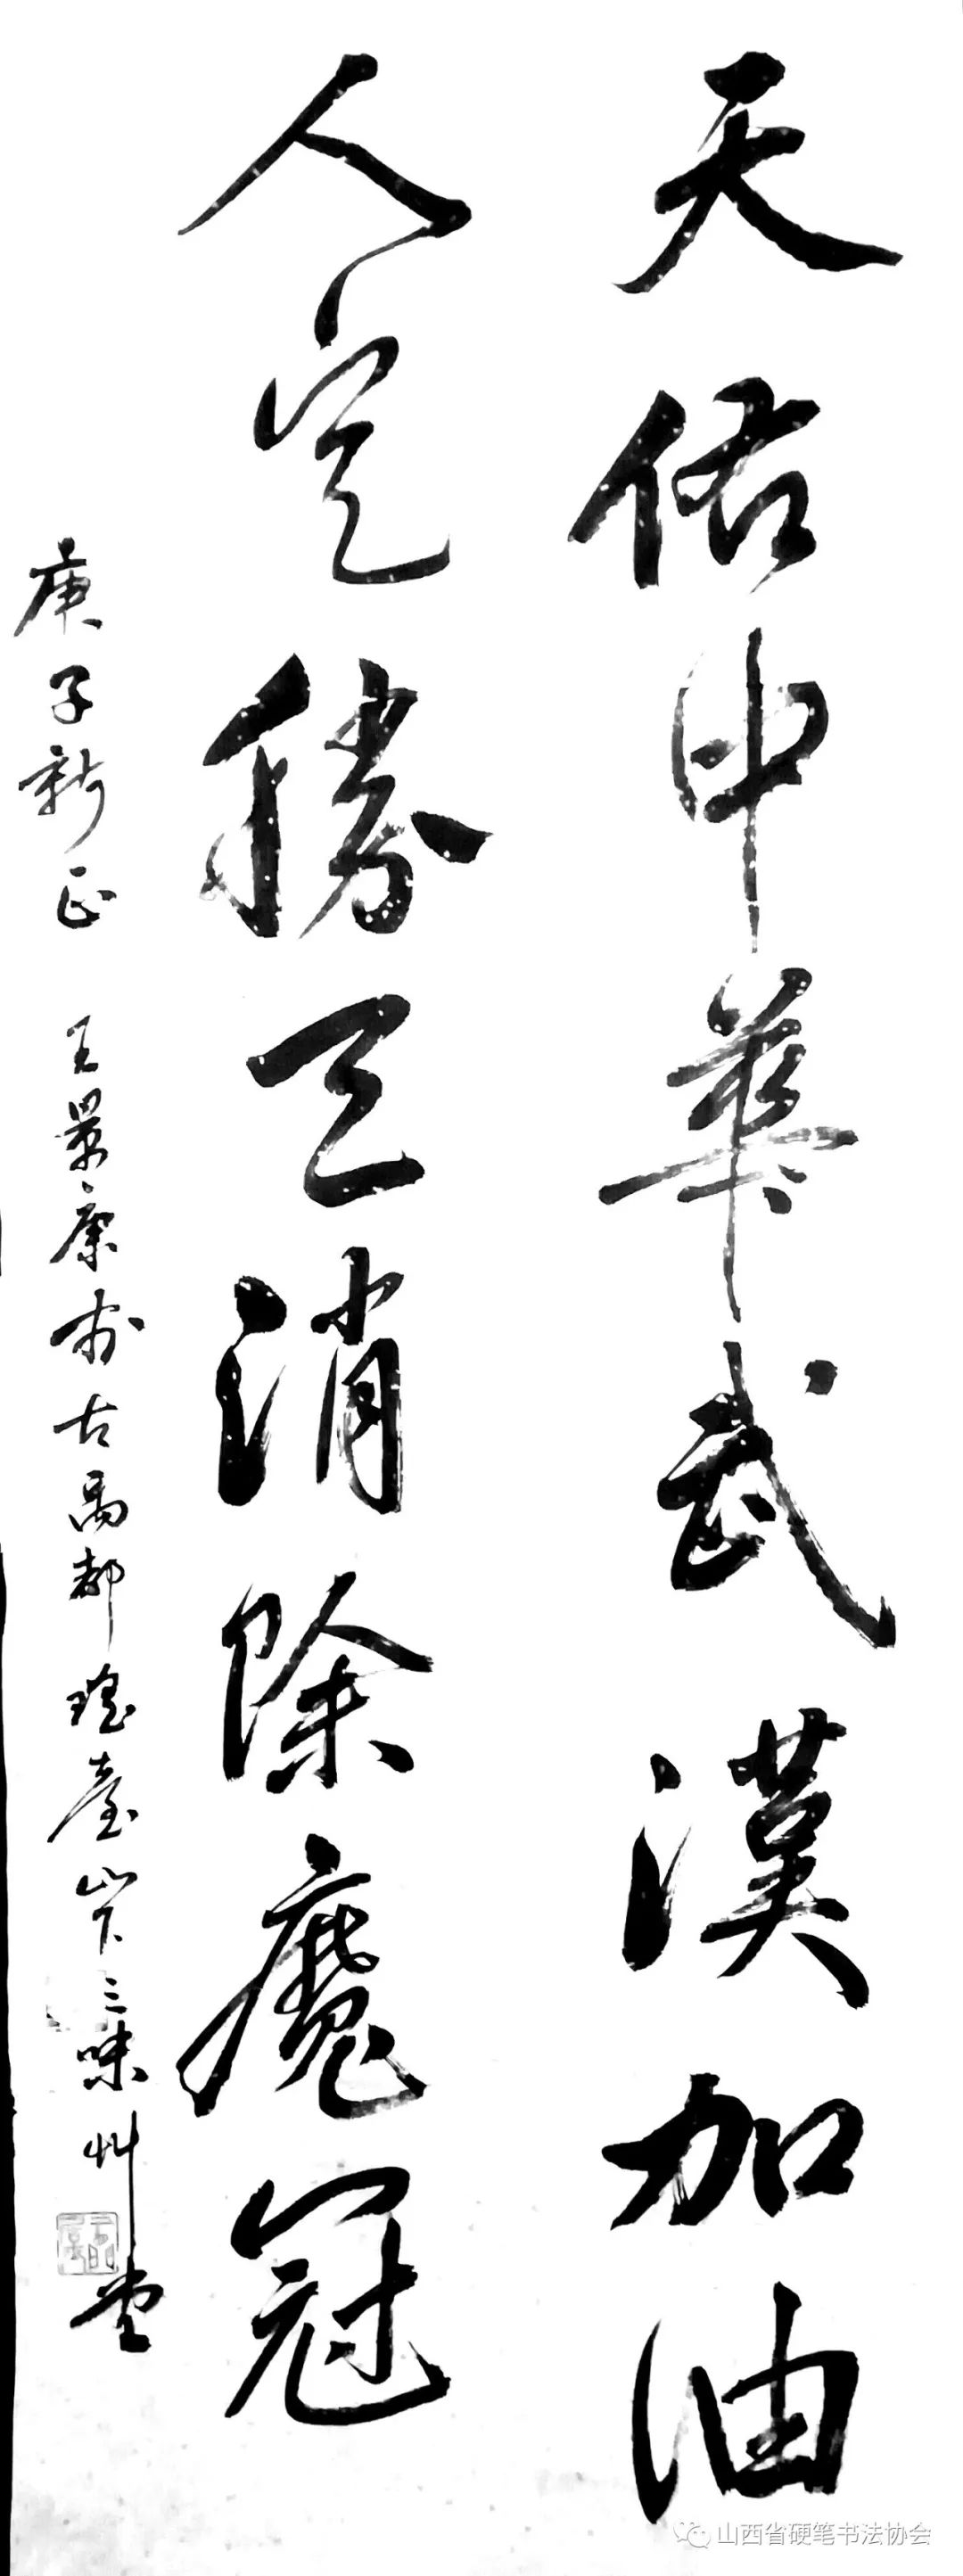 天佑中華武漢加油
人定勝天消除魔冠
庚子新正 王景康於古禹都瑶臺山下三味艸堂
山西省硬笔书法协会